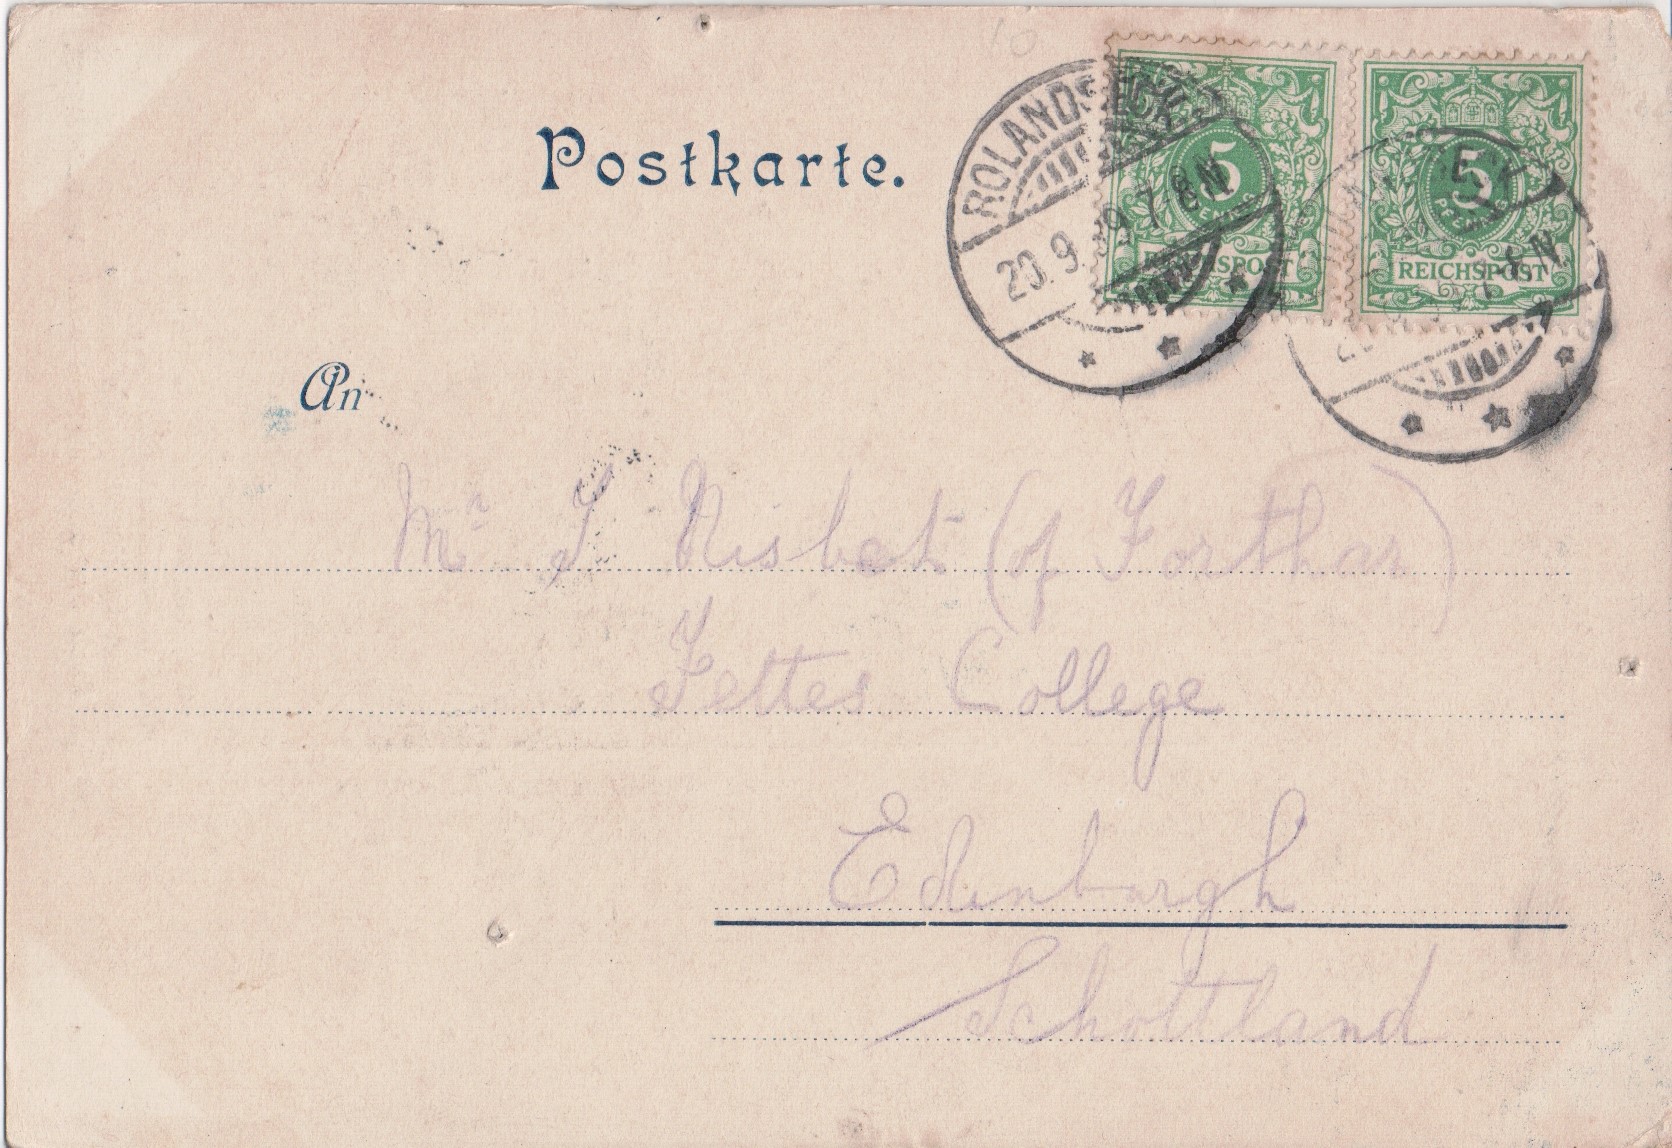 Postkarte.
ROLANDSECK
20.9.97. 7-8N
5
PFENNIG
REICHSPOST
5
PFENNIG
REICHSPOST
7-8N
An
Mr J Nisbet (of Forthar)
Fettes College
Edinburgh
Schottland